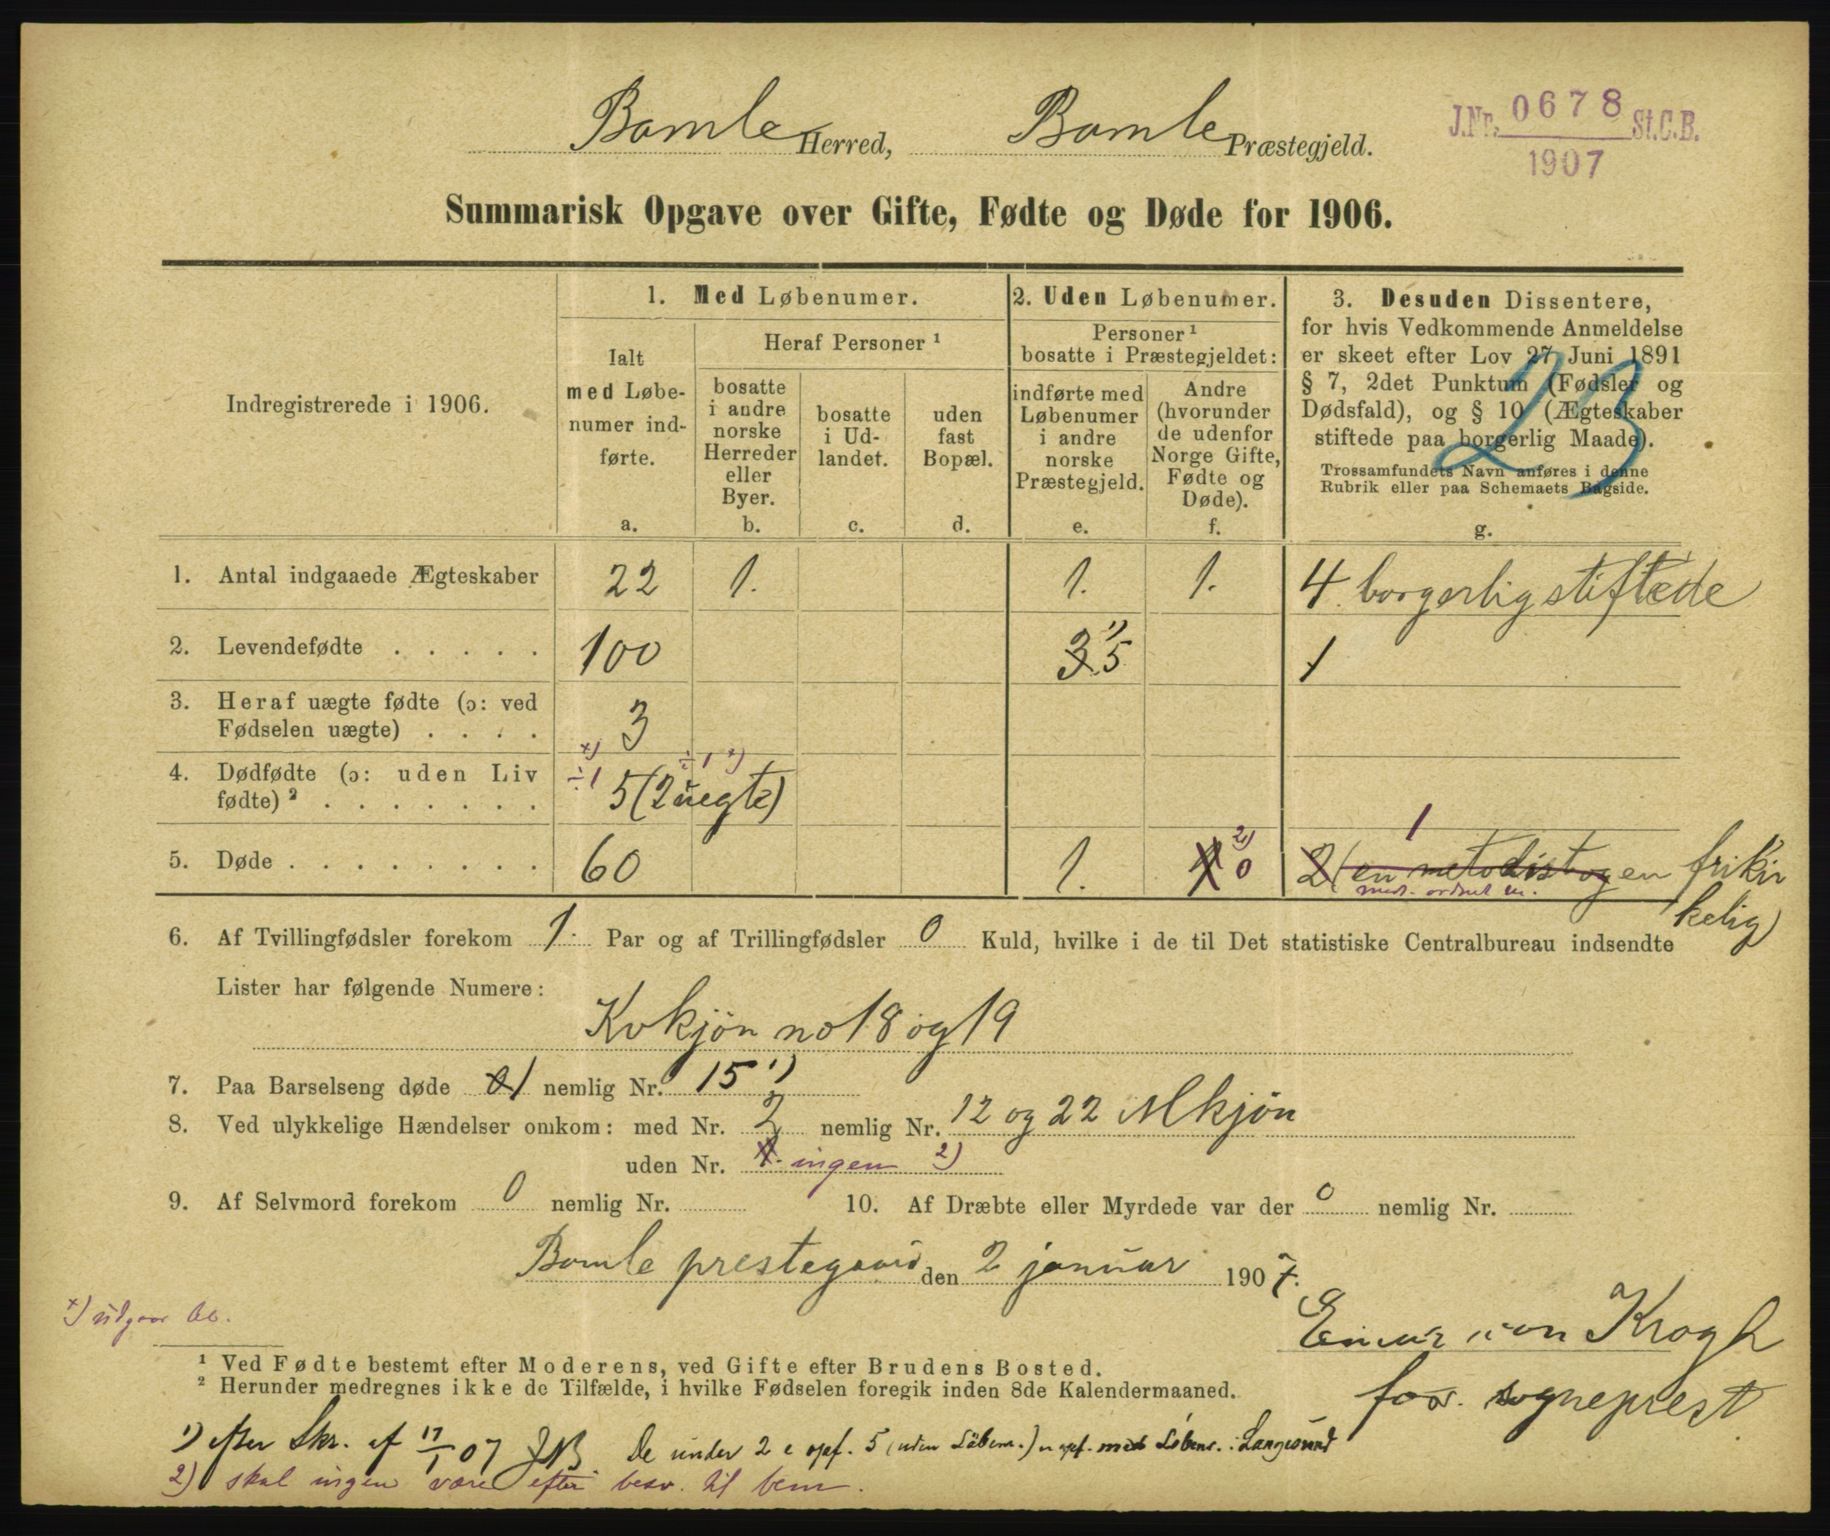 Bamle Herred, Bamle Præstegjeld.
J.Nr. 0678 St.C.B.
1907
Summarisk Opgave over Gifte, Fødte og Døde for 1906.
23
Indregistrerede i 1906.
1. Med Løbenumer.
Ialt
med Løbe-
numer ind-
førte.
a.
Heraf Personer ¹
bosatte
i andre
norske
Herreder
eller
Byer.
b.
bosatte
i Ud-
landet.
c.
uden
fast
Bopæl.
d.
2. Uden Løbenumer.
Personer ¹
bosatte i Præstegjeldet:
indførte med
Løbenumer
i andre
norske
Præstegjeld.
e.
Andre
(hvorunder
de udenfor
Norge Gifte,
Fødte og
Døde).
f.
3. Desuden Dissentere,
for hvis Vedkommende Anmeldelse
er skeet efter Lov 27 Juni 1891
§ 7, 2det Punktum (Fødsler og
Dødsfald), og § 10 (Ægteskaber
stiftede paa borgerlig Maade).
Trossamfundets Navn anføres i denne
Rubrik eller paa Schemaets Bagside.
g.
1. Antal indgaaede Ægteskaber 22 1. 1. 1. 4 borgerlig stiftede
2. Levendefødte . . . . . 100 3 5 1) 1
3. Heraf uægte fødte (ɔ: ved
Fødselen uægte) . . . . 3
4. Dødfødte (ɔ: uden Liv
fødte) ² . . . . . . . ÷1 x) 5 (2 uegte) ÷1 x)
5. Døde . . . . . . . . 60 1. 1 0 2) 1 2 (en metodist og en frikir
kelig)
6. Af Tvillingfødsler forekom 1. Par og af Trillingfødsler 0 Kuld, hvilke i de til Det statistiske Centralbureau indsendte
Lister har følgende Numere:
Kvkjön no 18 og 19
7. Paa Barselseng døde 0 1 nemlig Nr. 15 1)
8. Ved ulykkelige Hændelser omkom: med Nr. 2 nemlig Nr. 12 og 22 Mkjön
uden Nr. 1. ingen 2)
9. Af Selvmord forekom 0 nemlig Nr.
10. Af Dræbte eller Myrdede var der 0 nemlig Nr.
Bamle prestegaard den 2 januar 1907.
x) udgaar
Einar von Krogh
for. sogneprest.
¹ Ved Fødte bestemt efter Moderens, ved Gifte efter Brudens Bosted.
² Herunder medregnes ikke de Tilfælde, i hvilke Fødselen foregik inden 8de Kalendermaaned.
1) efter Skr. af 17/1 07 De under 2 e opf. 5 (uden Löben.) er opf. med Löbenr. i Langesund
2) skal ingen være efter besv. til bem.